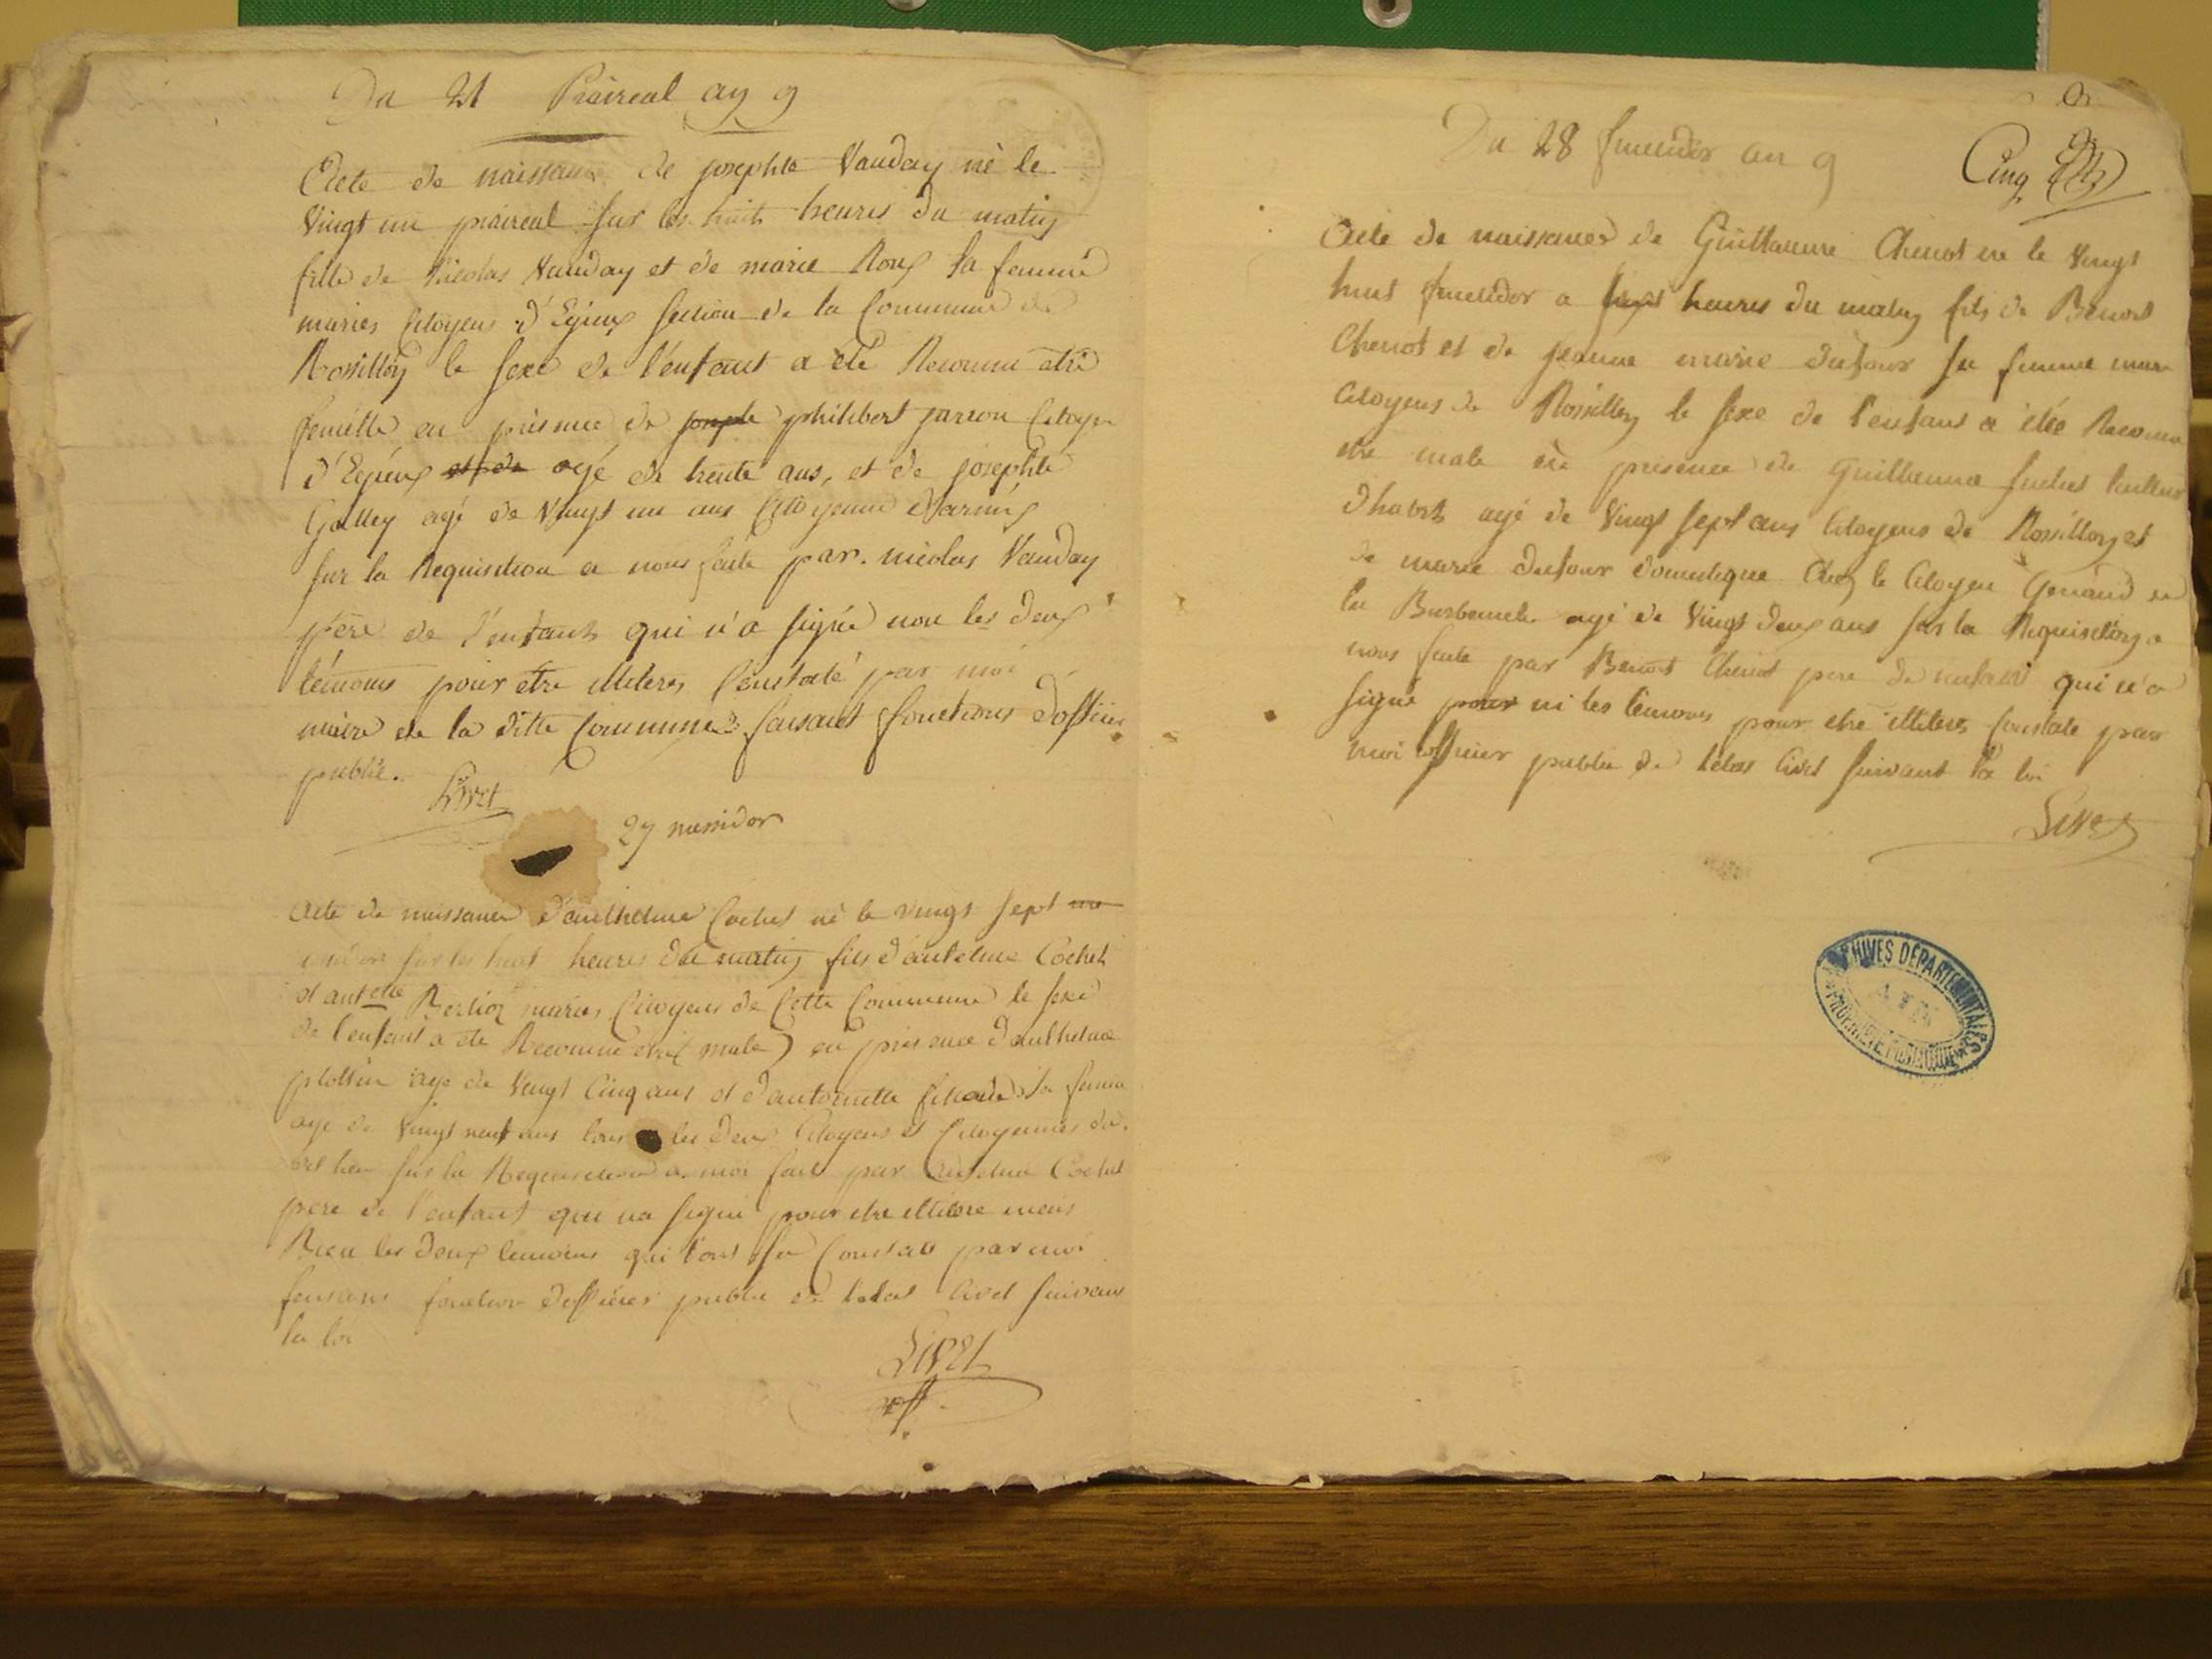 Du 21 Praireal an 9
Acte de naissance de josephte Vauday né le
Vingt un prairéal sur les huit heures du matin
fille de Nicolas Vauday et de marie Roux sa femme
mariés Citoyens d'Egieux section de la Commune de
Rossillon le sexe de l'enfant a été Reconnu etre
femelle en présence de philibert jarron Citoyen
d'Egieux agé de trente ans, et de josephte
Galley agé de Vingt un ans Citoyenne
sur la Requisition a nous faite par nicolas Vauday
père de l'enfant qui n'a signé non les deux
témoins pour être illiterés Constaté par moi
maire de la ditte Commune faisant fonctions d'officier
public.
Livet
27 messidor
Acte de naissance d'anthelme Cochet né le vingt sept
sur les huit heures du matin fils d'antelme Cochet
et antette Berlioz mariés Citoyens de Cette Commune le sexe
de l'enfant a ete Reconnu etre (male) en presence d'anthelme
plottin age de Vingt Cinq ans et d'antoinette sa femme
age de Vingt neuf ans tous les deux Citoyens et Citoyennes du
dit lieu sur la Requisition a moi faite par Antelme Cochet
pere de l'enfant qui na signé pour etre illitere mais
Bien les deux temoins qui l'ont su Constate par moi
faisant fonction d'officier public de letat Civil suivant
la loi
Livet
off.
Du 28 fructidor an 9
Cinq
Acte de naissance de Guillaume Chenot né le Vingt
huit fructidor a sept heures du matin fils de Benoit
Chenot et de jeanne marie dufour sa femme mar
Citoyens de Rossillon le sexe de l'enfant a été Reconnu
etre male en présence de Guillaume suchet tailleur
d'habits agé de Vingt sept ans Citoyens de Rossillon et
de marie dufour domestique Chez le Citoyen en
la Burbanche agé de Vingt deux ans sur la Requisition a
nous faite par Benoit Chenot pere de enfant qui n'a
signé ni les témoins pour etre illiterés Constate par
moi officier public de letat Civil suivant la loi
Livet
ARCHIVES DÉPARTEMENTALES
AIN
PROPRIÉTÉ PUBLIQUE